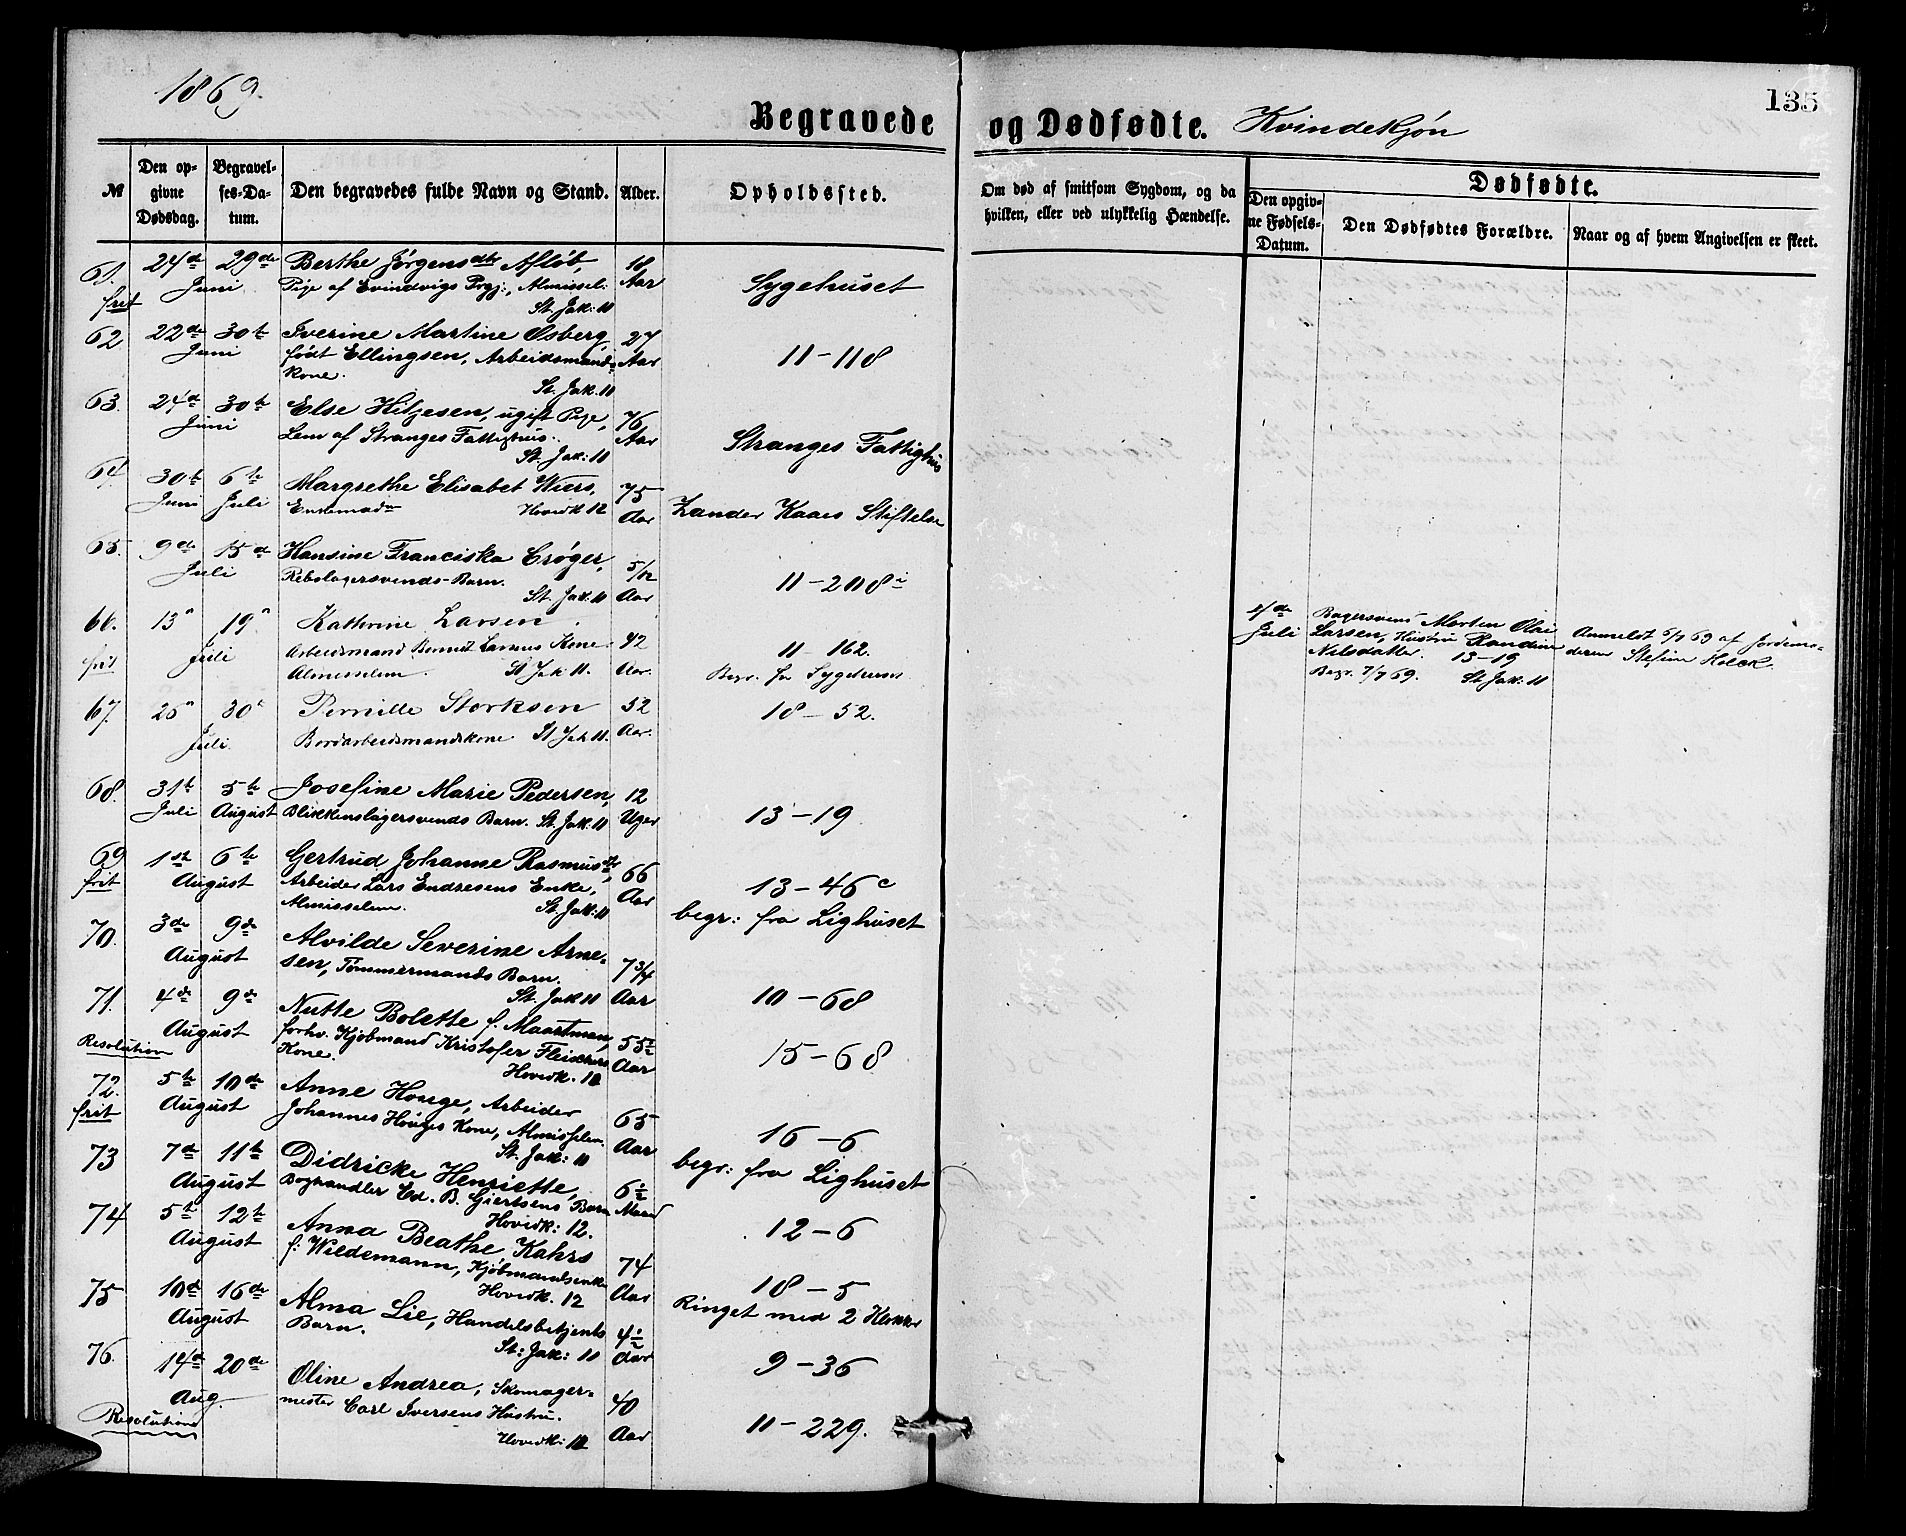 1869.
135
Begravede og Dødfødte. Kvindekjøn
№
Den opgivne Dødsdag.
Begravelses-Datum.
Den begravedes fulde Navn og Stand.
Alder.
Opholdssted.
Om død af smitsom Sygdom, og da
hvilken, eller ved ulykkelig Hændelse.
Dødfødte.
Den opgivne Fødsels-Datum.
Den Dødfødtes Forældre.
Naar og af hvem Angivelsen er skeet.
61. 24de 29de Berthe Jørgensdtr Afløb, 18
frit Juni Pige af Evindvigs Prgj:, Almissel: Aar Sygehuset
St. Jak: 11
62 22de 30te Iverine Martine Øsberg, 27
Juni født Ellingsen, Arbeidsmands- Aar 11-118
Kone.
St. Jak. 11
63. 24de 30te Else Hitjesen, ugift Pige, 76
Juni Lem af Stranges Fattighus. Aar Stranges Fattighus
St. Jak: 11
64. 30te 6te Margrethe Elisabet Wiers, 75
Juni Juli Enkemadm Hovedk 12 Aar Zander Kaaes Stiftelse
65. 9de 15de Hansine Franciska Crøger, 5/12
Juli Rebslagersvends-Barn. Aar 11-208i
St. Jak. 11
66. 13" 19" Kathrine Larsen. 42
frit Juli Arbeidsmand Larsens Kone 11-162.
Almesselem. St Jak 11. Aar. Begr. fra Sygehuset
67. 25" 30" Pernille Storksen 52 18-52.
Juli. Bordarbeidsmandskone. St Jak 11. Aar.
68. 31te 5te Josefine Marie Pedersen, 12
Juli August Blikkenslagersvends Barn. St. Jak: 11 Uger 13-19
69 1ste 6te Gertrud Johanne Rasmusdtr, 66
frit August Arbeider Lars Endresens Enke, Aar 13-46c
Almisselem. St. Jak: 11 begr: fra Lighuset
70. 3de 9de Alvilde Severine Arne-
August sen, Tømmermands Barn. 7 3/4
St. Jak 11 Aar 10-68
71. 4de 9de Nutte Bolette f. Maartman,
August forhv. Kjøbmand Kristofer Fleischers 55½
Resolution Kone. Hovedk. 12 Aar 15-68
72. 5te 10de Anne Houge, Arbeider
frit August Johannes Houges Kone, Almisselem. 65
St. Jak: 11 Aar 16-6
73 7de 11te Didricke Henriette, begr: fra Lighuset
August Boghandler Ed. B. Giertsens Barn 6½ Maaned
Hovedk: 12. 12-6
74 5te 12te Anna Beathe Kahrs
August f: Wildemann, Kjøbmandsenke 74
Hovedk. 12 Aar 18-5
75 10de 16de Alma Lie, Handelsbetjents Ringet med 2 Klokker
August Barn. 4½
St: Jak: 11 Aar
76. 14de 20de Oline Andrea, Skomager- 9-36
Aug. mester Carl Iversens Hustru. 40
Resolution Hovedk: 12 Aar 11-229.
4/de Bagersvend Morten Olai
Juli Larsen, Hustru Randine
Nilsdatter. 13-19
Begr. 7/7 69. St. Jak: 11
Anmeldt 6/7 69 af Jordemo-
deren Stefine Holck.